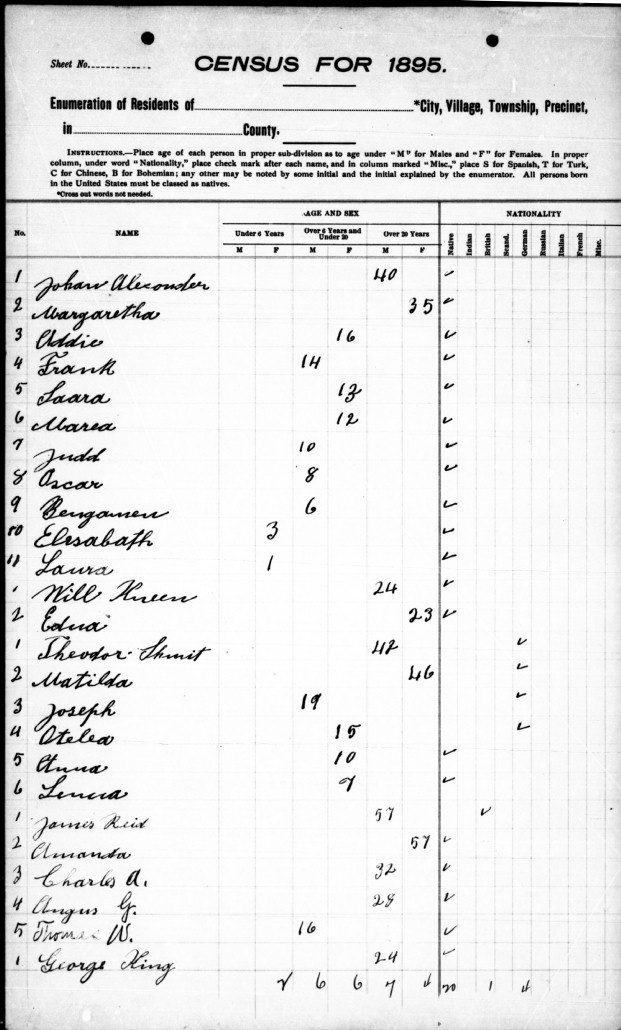 Sheet No.
CENSUS FOR 1895.
Enumeration of Residents of *City, Village, Township, Precinct,
in County.
INSTRUCTIONS.—Place age of each person in proper sub-division as to age under "M" for Males and "F" for Females. In proper
column, under word "Nationality," place check mark after each name, and in column marked "Misc.," place S for Spanish, T for Turk,
C for Chinese, B for Bohemian; any other may be noted by some initial and the initial explained by the enumerator. All persons born
in the United States must be classed as natives.
*Cross out words not needed.
AGE AND SEX NATIONALITY
No. NAME Under 6 Years Over 6 Years and Under 20 Over 20 Years Native Indian British Scand. German Russian Italian French Misc.
M F M F M F
1 Johan Alexonder 40 ✓
2 Margaretha 35 ✓
3 Addie 16 ✓
4 Frank 14 ✓
5 Saara 13 ✓
6 Marea 12 ✓
7 Judd 10 ✓
8 Oscar 8 ✓
9 Bengamen 6 ✓
10 Elesabath 3 ✓
11 Laura 1 ✓
1 Will Kneen 24 ✓
2 Edna 23 ✓
1 Theodor Skmit 42 ✓
2 Matilda 46 ✓
3 Joseph 19 ✓
4 Otelea 15 ✓
5 Anna 10 ✓
6 7 ✓
1 James Reid 57 ✓
2 Amanda 57 ✓
3 Charles A. 32 ✓
4 Angus G. 28 ✓
5 Thomas W. 16 ✓
1 George King 24 ✓
2 6 6 7 4 20 1 4